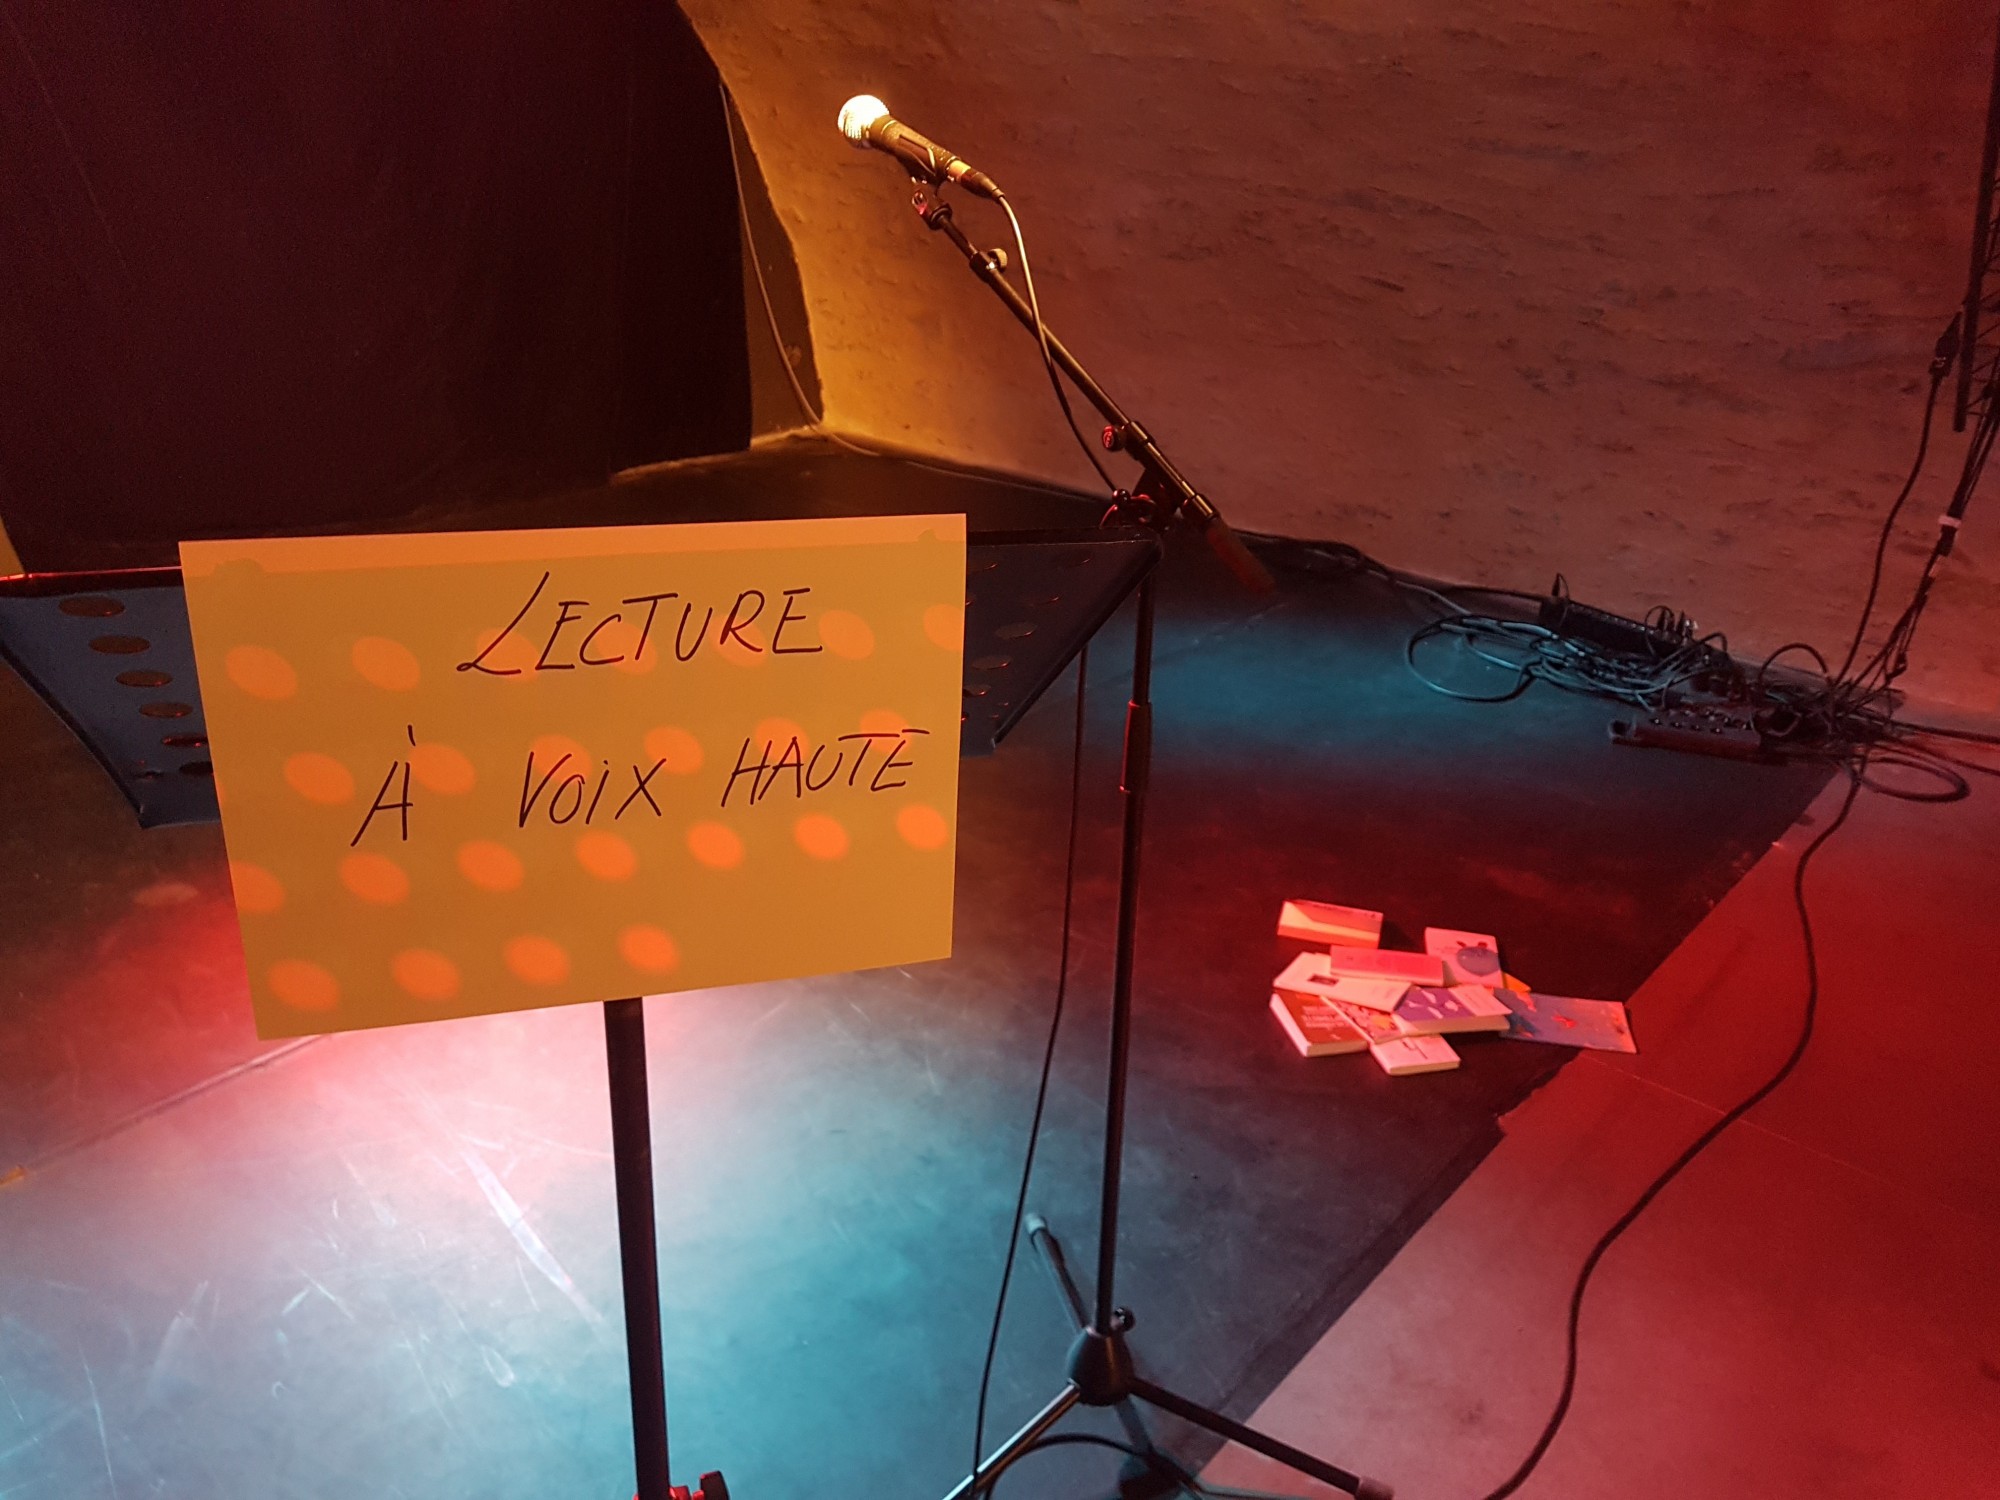 LECTURE
À VOiX HAUTE